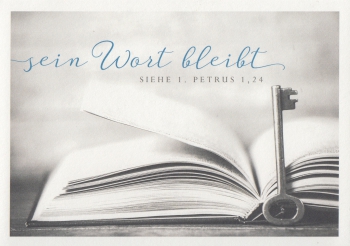 sein Wort bleibt
SIEHE 1. PETRUS 1,24